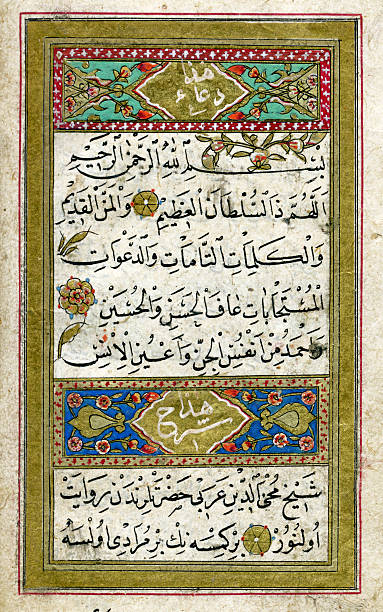 هذا
دعاء
بِسْمِ اللهِ الرَّحْمٰنِ الرَّحِيمِ
اَللّٰهُمَّ ذَالسُّلْطَانِ الْعَظِيمِ وَالْمَنِّ الْقَدِيمِ
وَالْكَلِمَاتِ التَّامَّاتِ وَالدَّعَوَاتِ
الْمُسْتَجَابَاتِ عَافِ الْحَسَنِ وَالْحُسَيْنِ
وَاحْمَدْ مِنْ اَنْفُسِ الْجِنِّ وَاَعْيُنِ الْاِنْسِ
هذا
شرح
شيخ محي الدين عربي حضرتلرندن روايت
اولنور بركسنه نك بر مرادى اولسه